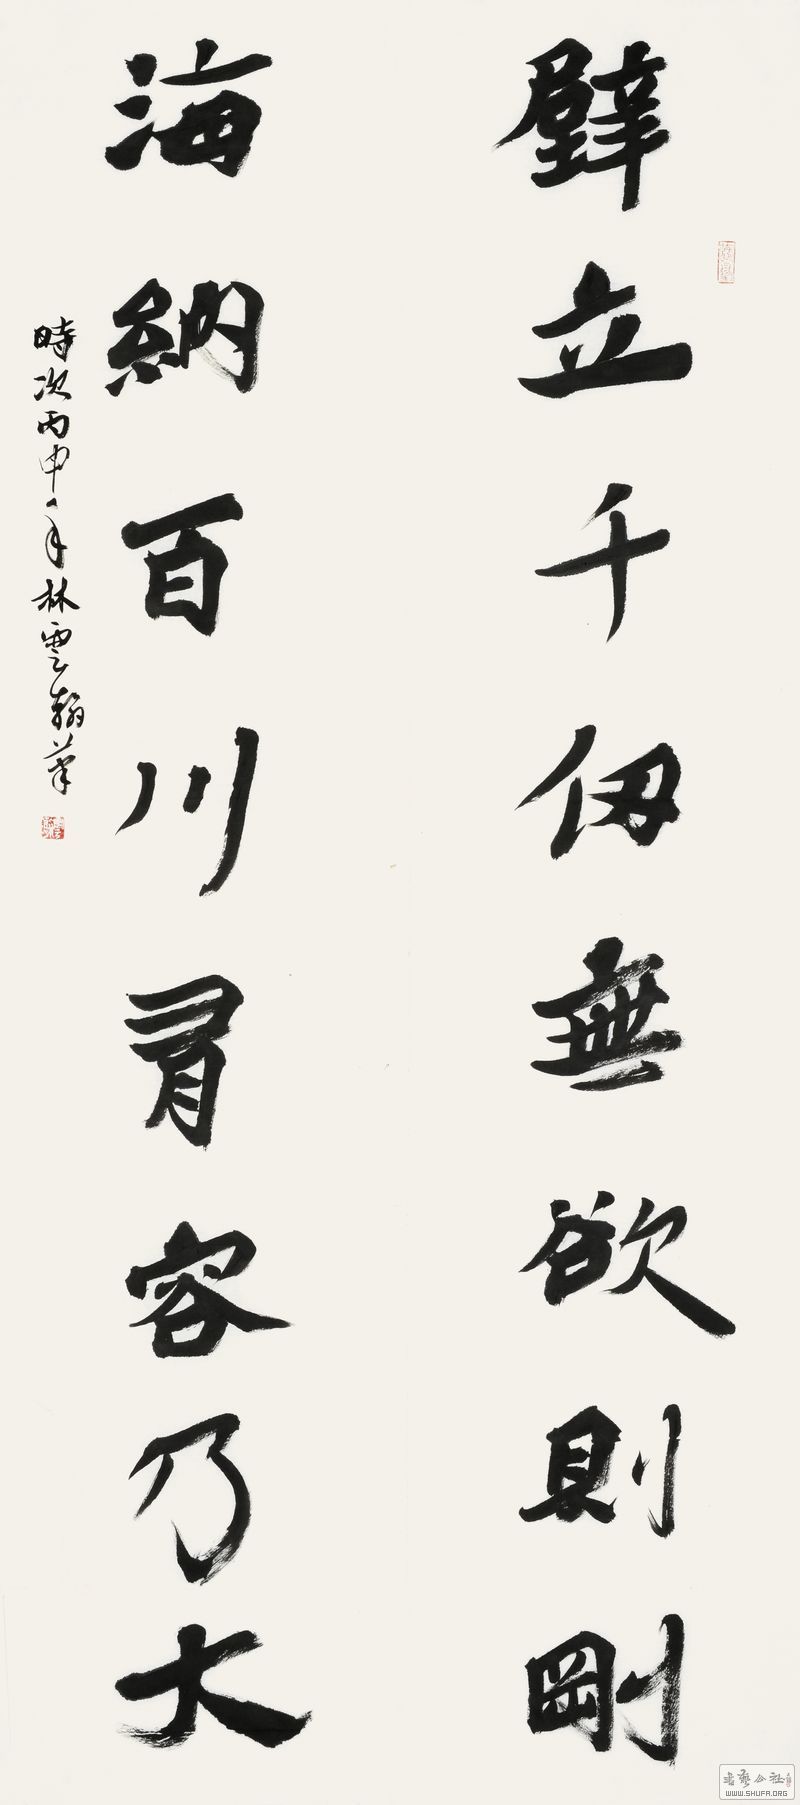 壁立千仞無欲則剛
海納百川有容乃大
時次丙申年林雲翰筆
書藝公社
WWW.SHUFA.ORG